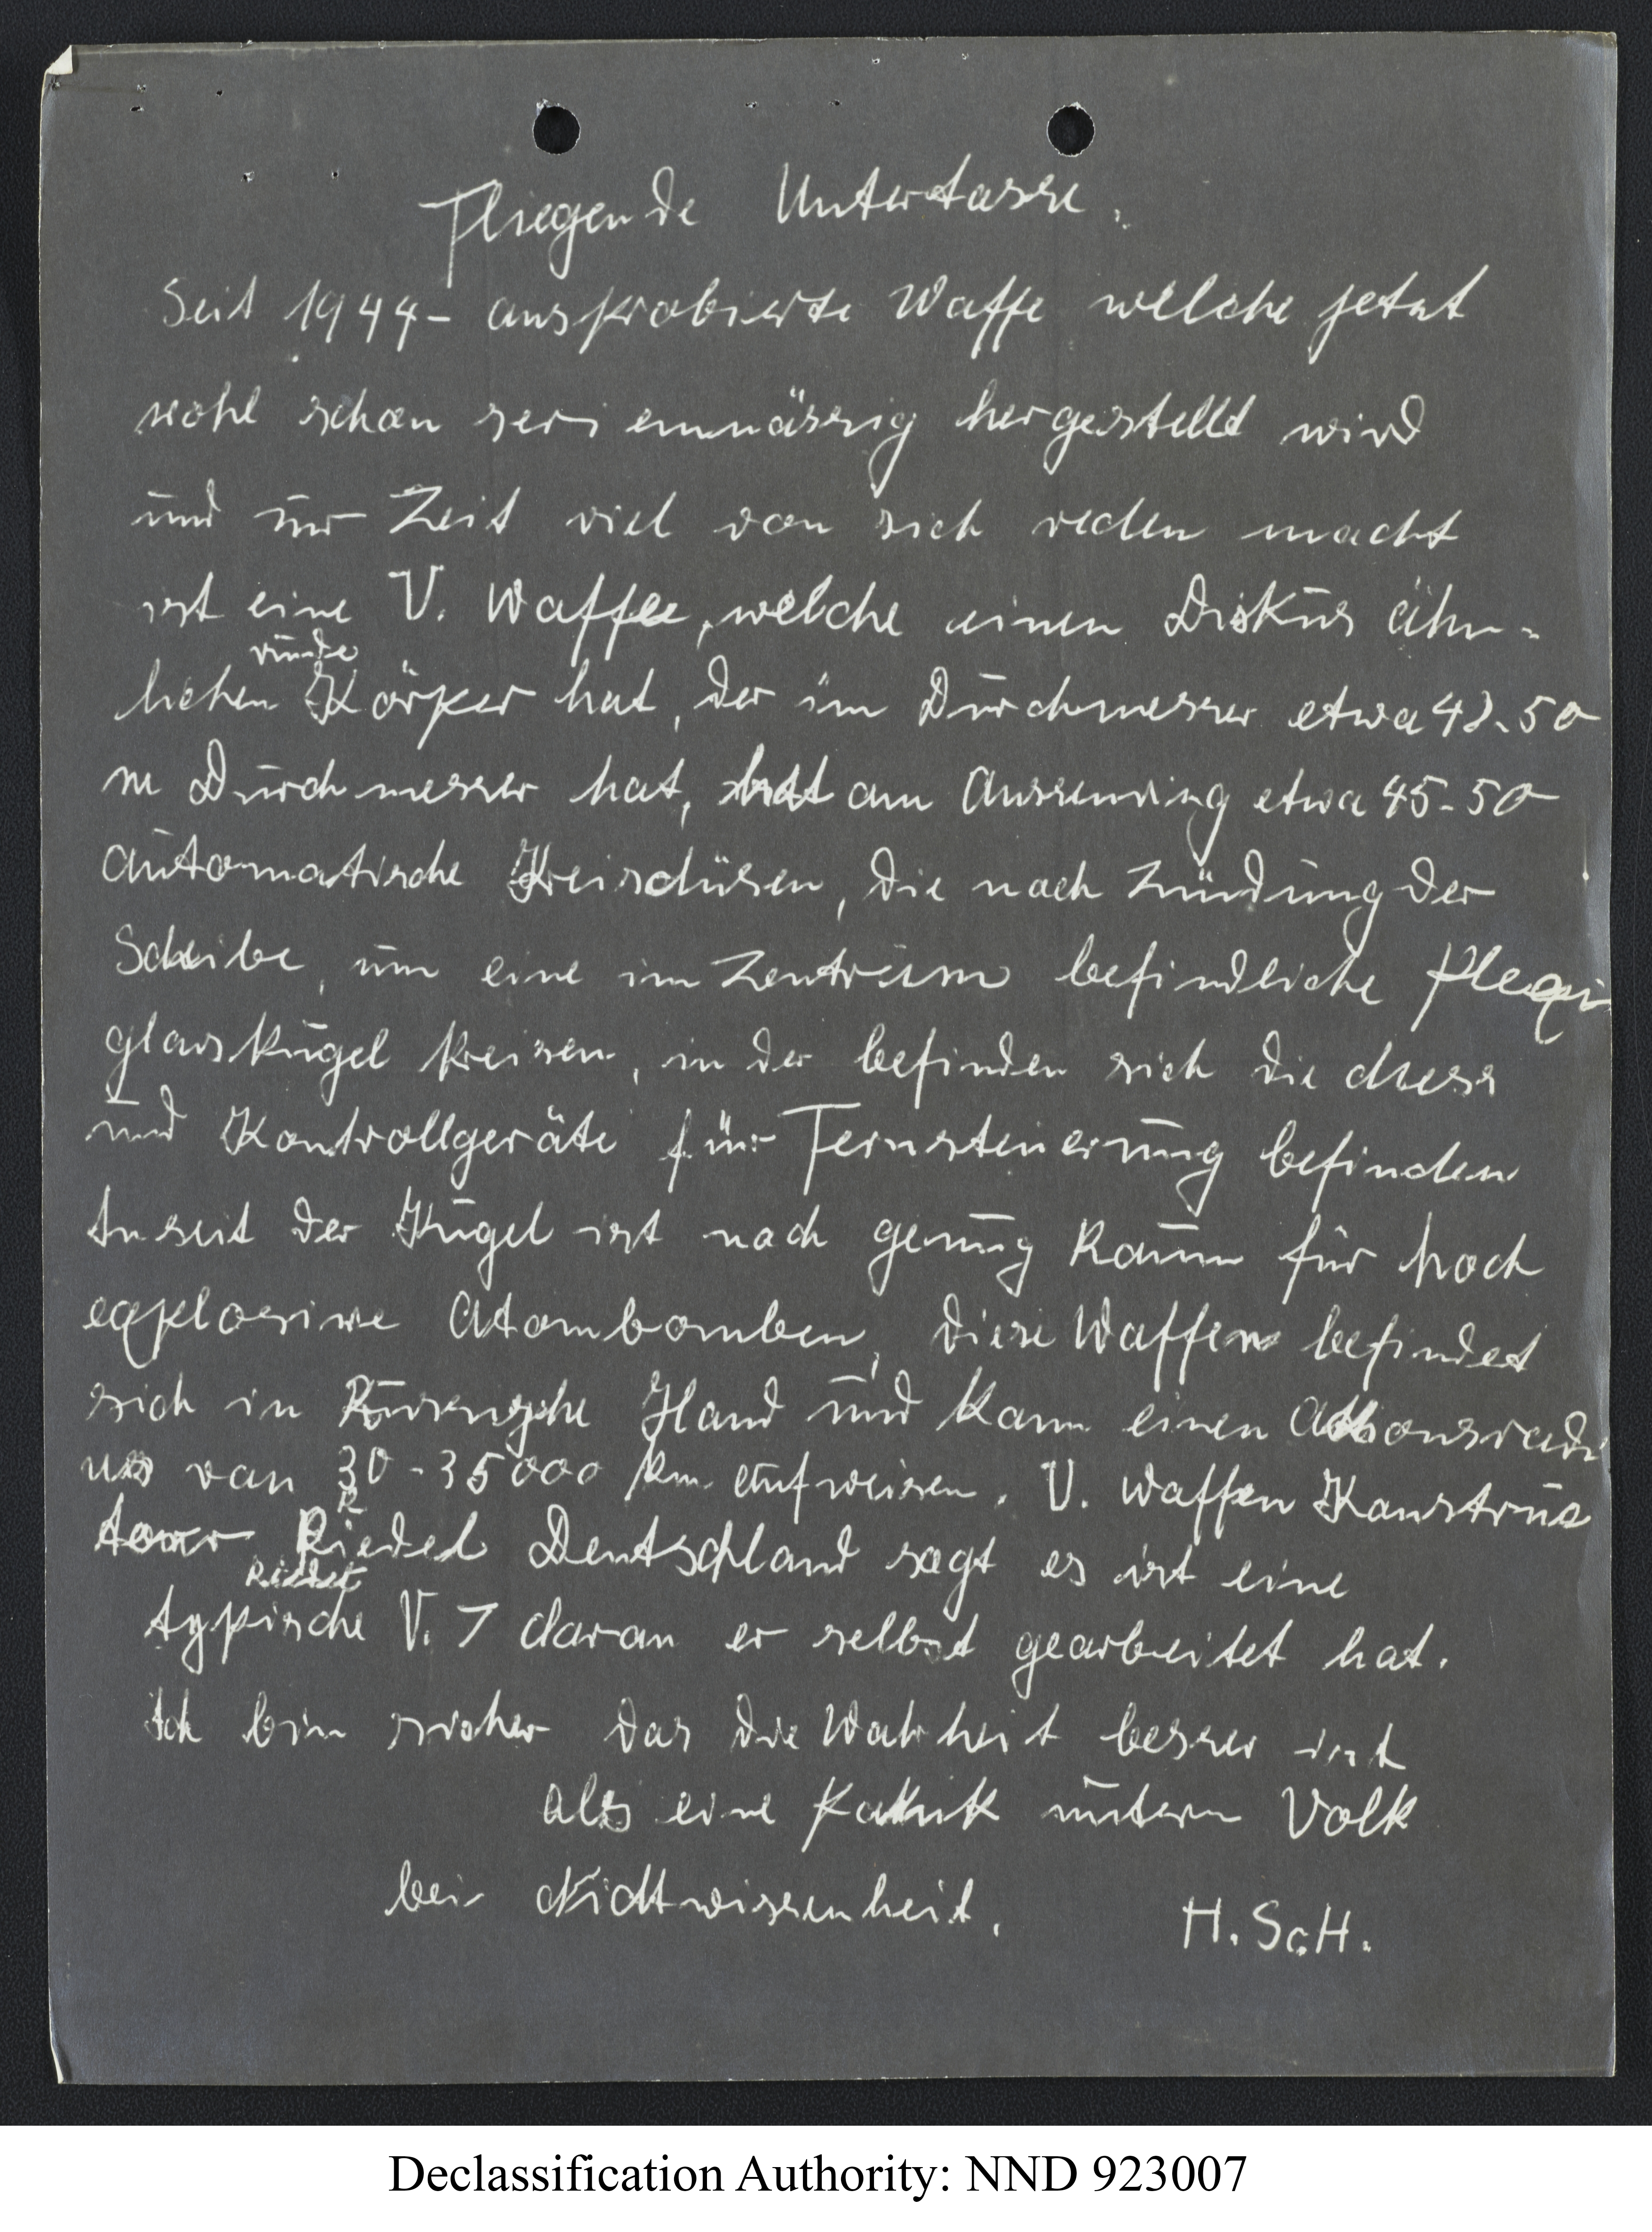 Fliegende Untertasse.
Seit 1944 - ausprobierte Waffe welche jetzt
wohl schon serienmässig hergestellt wird
und zur Zeit viel von sich reden macht
ist eine V. Waffe, welche einen Diskus ähn-
runde
lichen Körper hat, der im Durchmesser etwa 42-50
m Durchmesser hat, hat am Aussenring etwa 45-50
automatische Kreisdüsen, die nach Zündung der
Scheibe, um eine im Zentrum befindliche Plexi
glaskugel kreisen, in der befinden sich die Mess
und Kontrollgeräte für Fernsteuerung befinden
der Kugel ist noch genug Raum für hoch
explosive Atombomben, diese Waffen befindet
sich in Hand und kann einen Aktionsradi
us von 30-35000 km aufweisen. V. Waffen Konstruk
teur Riedel Deutschland sagt es ist eine
Riedel
typische V. 7 daran er selbst gearbeitet hat.
Ich bin sicher das die Wahrheit besser ist
als eine Panik unterm Volk
bei Nichtwissenheit. H. ScH.
Declassification Authority: NND 923007